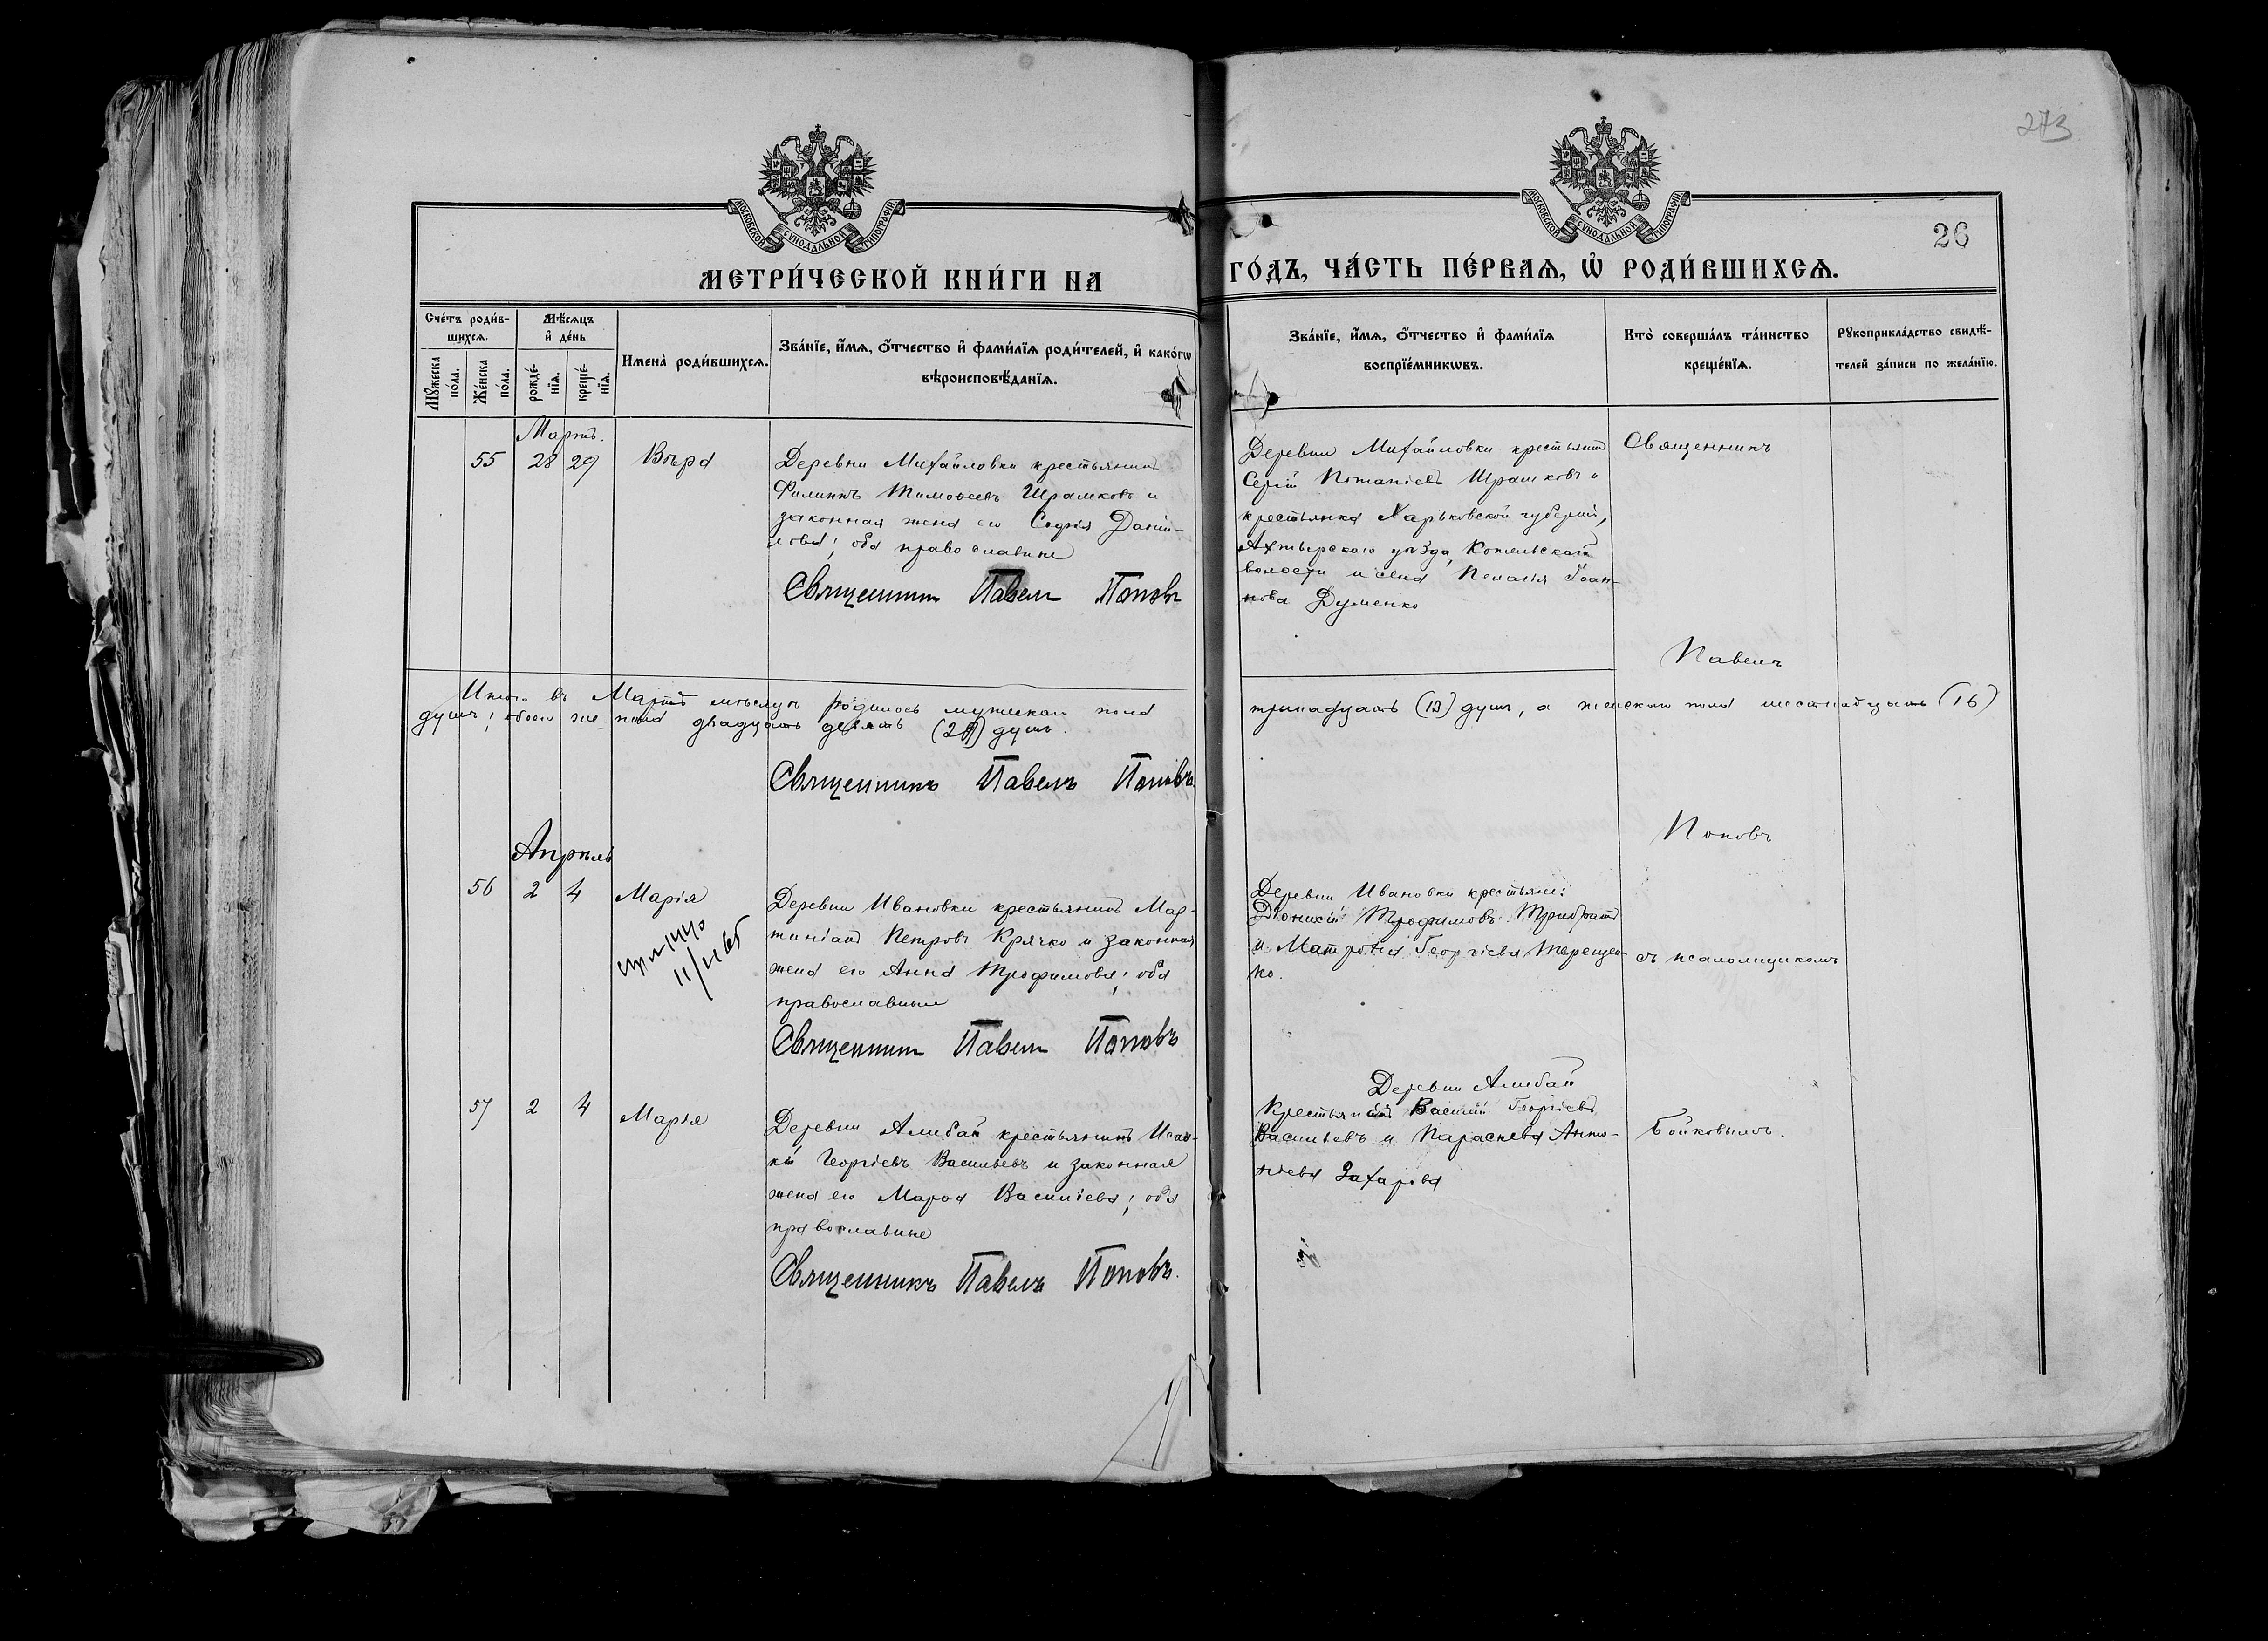 273
МОСКОВСКОЙ СѴНОДАЛЬНОЙ ТИПОГРАФІИ
МОСКОВСКОЙ СѴНОДАЛЬНОЙ ТИПОГРАФІИ
26
МЕТРИ́ЧЕСКОЙ КНИ́ГИ НА
ГО́ДЪ, ЧА́СТЬ ПЕ́РВАѦ, Ѡ҆ РОДИ́ВШИХСѦ.
Сче́тъ роди́в-
шихсѧ.
Мѣ́сѧцъ
и҆ де́нь
Мꙋ́жеска по́ла.
Же́нска по́ла.
рожде́-
нїѧ.
креще́-
нїѧ.
Имена̀ роди́вшихсѧ.
Зва́нїе, и҆́мѧ, ѻ҆́тчество и҆ фами́лїѧ роди́телей, и҆ како́гѡ
вѣроисповѣ́данїѧ.
Зва́нїе, и҆́мѧ, ѻ҆́тчество и҆ фами́лїѧ
воспрїе́мникѡвъ.
Кто̀ соверша́лъ та́инство
креще́нїѧ.
Рꙋкоприкла́дство свидѣ́-
телей за́писи по жела́нїю.
Мартъ.
55 28 29 Вѣра
Деревни Михайловки крестьянинъ
Филиппъ Тимофеевъ Шрамковъ и
законная жена его Софія Даніи-
лова; оба православные
Священникъ Павелъ Поповъ
Деревни Михайловки крестьянинъ
Сергій Потапіевъ Шрамковъ и
крестьянка Харьковской губерніи,
Ахтырскаго уѣзда, Котельской
волости и села Пелагія Іоан-
нова Думенко
Священникъ
Павелъ
Поповъ
съ псаломщикомъ
Бойковымъ.
Итого въ Мартѣ мѣсяцѣ родилось мужескаго пола
тринадцать (13) душъ, а женскаго пола шестнадцать (16)
душъ; обоего же пола двадцать девять (29) душъ.
Священникъ Павелъ Поповъ.
Апрѣль
56 2 4 Марія
11/II 65
Деревни Ивановки крестьянинъ Мар-
тиніанъ Петровъ Крячко и законная
жена его Анна Трофимова; оба
православные
Священникъ Павелъ Поповъ
Деревни Ивановки крестьяне:
Діонисій Трофимовъ
и Матрона Георгіева Терещен-
ко.
57 2 4 Марія
Деревни Алибай крестьянинъ Исаа-
кій Георгіевъ Васильевъ и законная
жена его Марѳа Василіева; оба
православные
Священникъ Павелъ Поповъ.
Деревни Алибай
Крестьянинъ Василій Георгіевъ
Васильевъ и Параскева Анто-
ніева Захарова